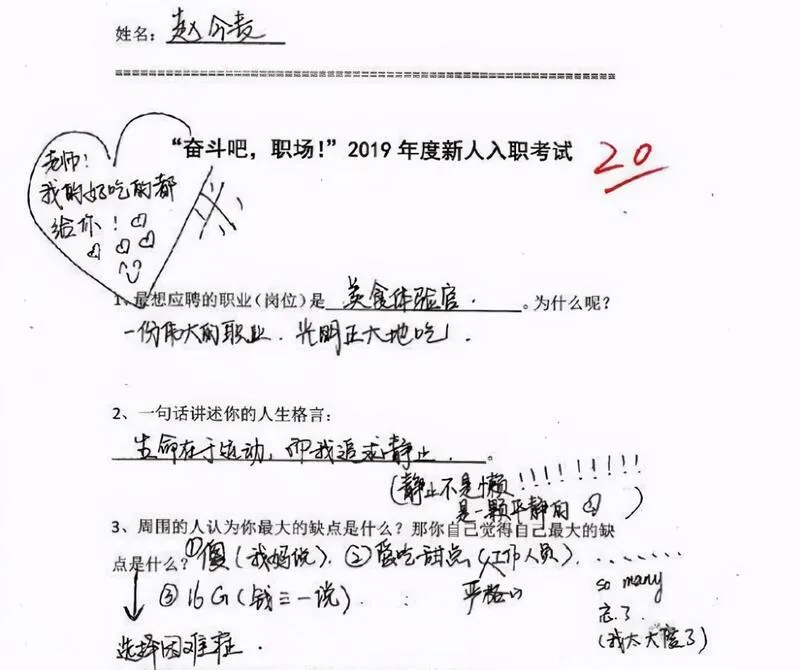 姓名：赵今麦
==========================================================
“奋斗吧，职场！”2019 年度新人入职考试
20
老师！
我的好吃的都
给你！
1、最想应聘的职业（岗位）是 美食体验官. 。为什么呢？
一份伟大的职业. 光明正大地吃！
2、一句话讲述你的人生格言：
生命在于运动，而我追求静止. 。
(静止不是懒!!!!!!!!!
是一颗平静的 )
3、周围的人认为你最大的缺点是什么？那你自己觉得自己最大的缺
点是什么？①傻(我妈说). ②爱吃甜点(工作人员). .......
严格的
③16G(钱三一说).
so many
忘了
(我太大度了)
选择困难症.